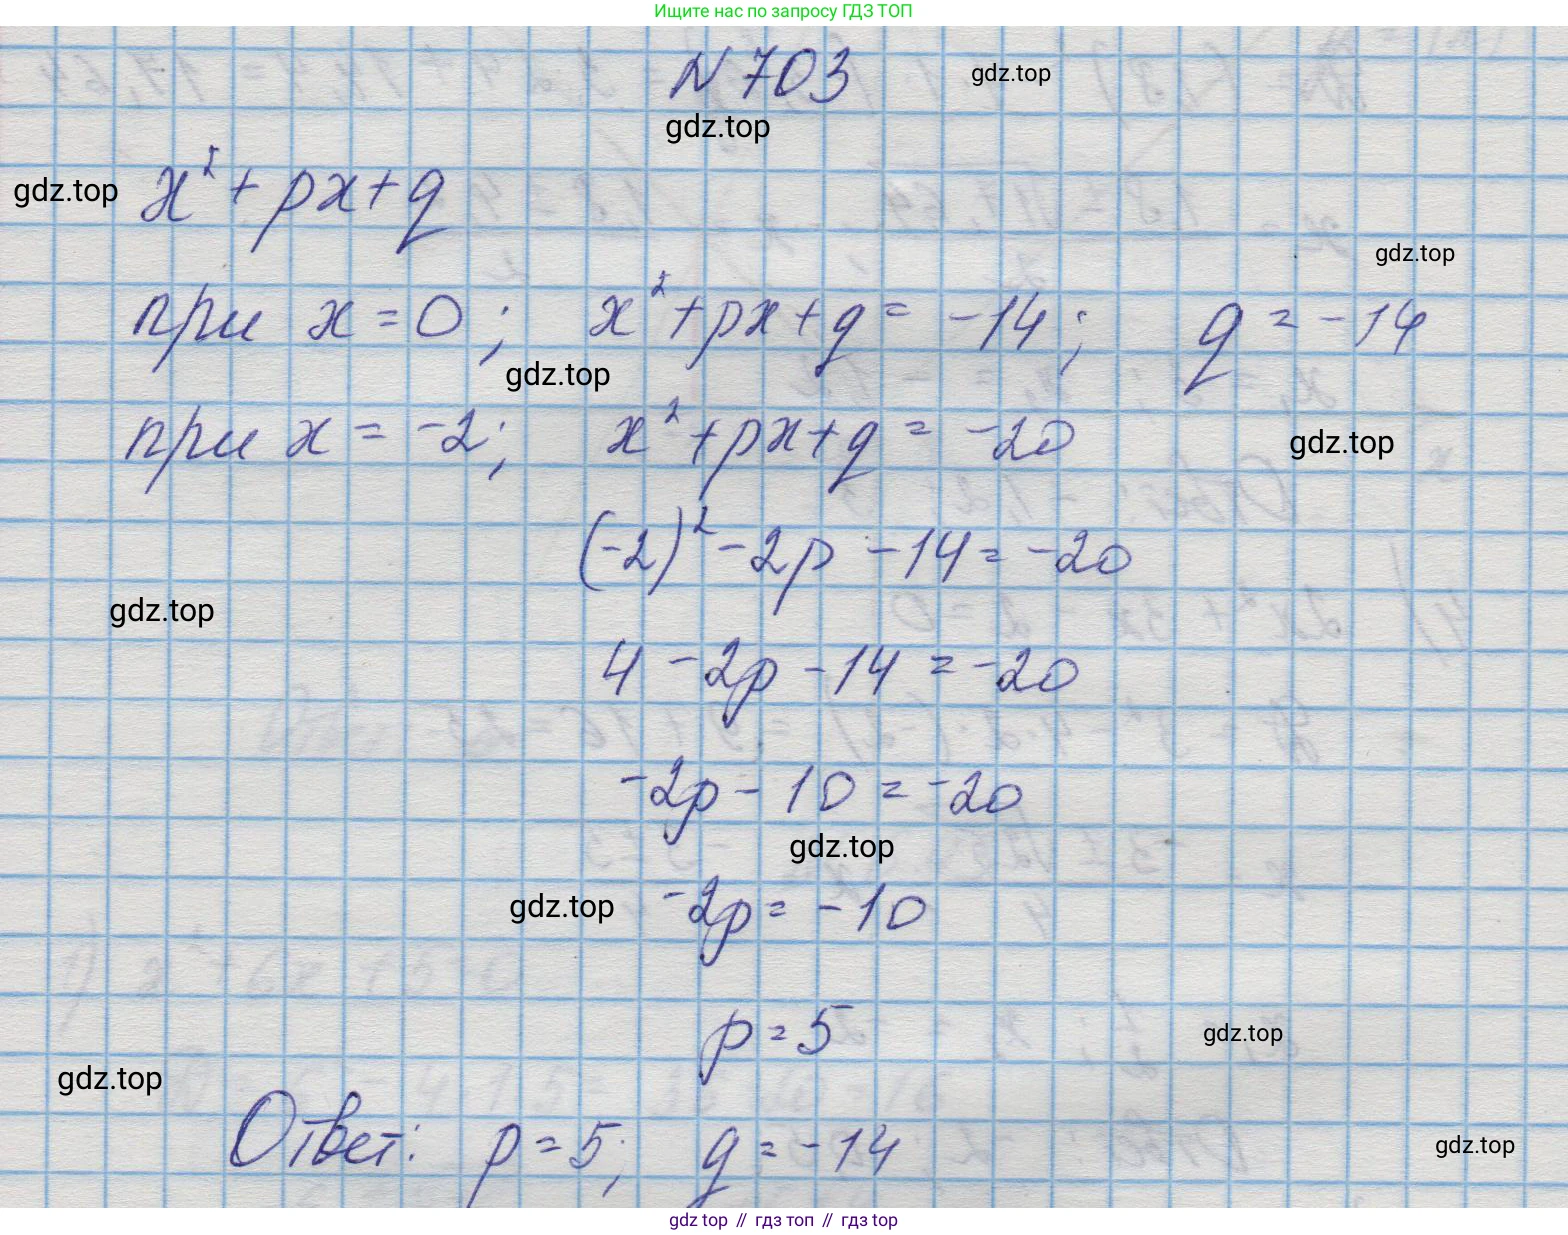 Ищите нас по запросу ГДЗ ТОП
N 703
gdz.top
gdz.top
gdz.top
x² + px + q
gdz.top
при x = 0; x² + px + q = -14; q = -14
gdz.top
при x = -2; x² + px + q = -20
gdz.top
(-2)² - 2p - 14 = -20
gdz.top
4 - 2p - 14 = -20
-2p - 10 = -20
gdz.top
gdz.top
-2p = -10
p = 5
gdz.top
gdz.top
Ответ: p = 5; q = -14
gdz.top
gdz top // гдз топ // gdz top